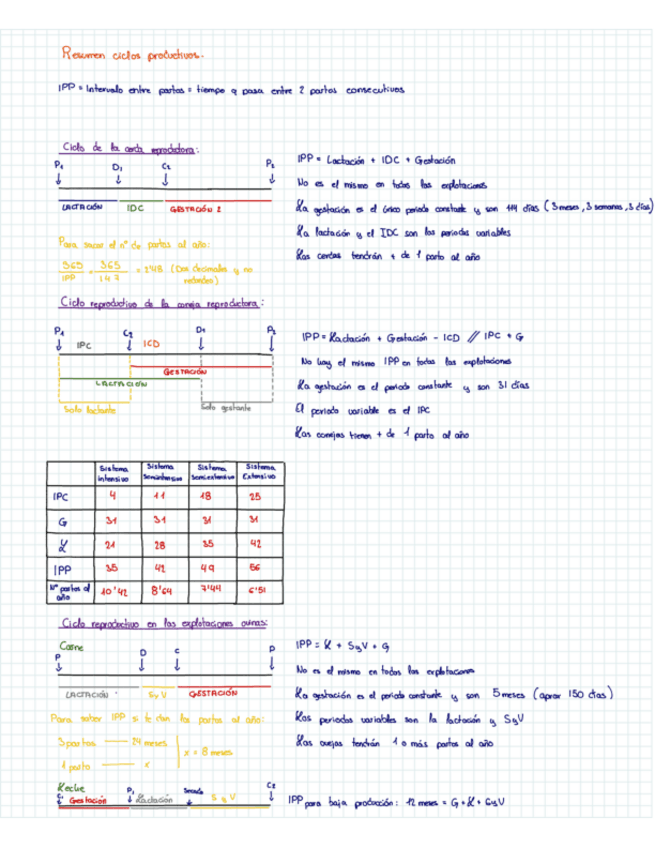 Resumen ciclos productivos.
IPP = Intervalo entre partos = tiempo q pasa entre 2 partos consecutivos
Ciclo de la cerda reproductora:
P1 D1 C2 P2
LACTACIÓN IDC GESTACIÓN 2
IPP = Lactación + IDC + Gestación
No es el mismo en todas las explotaciones
La gestación es el único periodo constante y son 114 días (3 meses, 3 semanas, 3 días)
La lactación y el IDC son los periodos variables
Las cerdas tendrán + de 1 parto al año
Para sacar el nº de partos al año:
365/IPP = 365/147 = 2'48 (Dos decimales y no redondeo)
Ciclo reproductivo de la coneja reproductora:
P1 C2 D1 P2
IPC ICD
GESTACIÓN
LACTACIÓN
Solo lactante Solo gestante
IPP = Lactación + Gestación - ICD // IPC + G
No hay el mismo IPP en todas las explotaciones
La gestación es el periodo constante y son 31 días
El periodo variable es el IPC
Las conejas tienen + de 1 parto al año
Sistema intensivo Sistema Semiintensivo Sistema Semiextensivo Sistema Extensivo
IPC 4 11 18 25
G 31 31 31 31
L 21 28 35 42
IPP 35 42 49 56
Nº partos al año 10'42 8'64 7'44 6'51
Ciclo reproductivo en las explotaciones ovinas:
Carne
P D C P
LACTACIÓN S y V GESTACIÓN
IPP = L + SyV + G
No es el mismo en todas las explotaciones
La gestación es el periodo constante y son 5 meses (aprox 150 días)
Los periodos variables son la lactación y SyV
Las ovejas tendrán 1 o más partos al año
Para saber IPP si te dan los partos al año:
3 partos — 24 meses
1 parto — x
x = 8 meses
Leche
C1 P1 Secado C2
Gestación Lactación S y V
IPP para baja producción: 12 meses = G + L + SyV